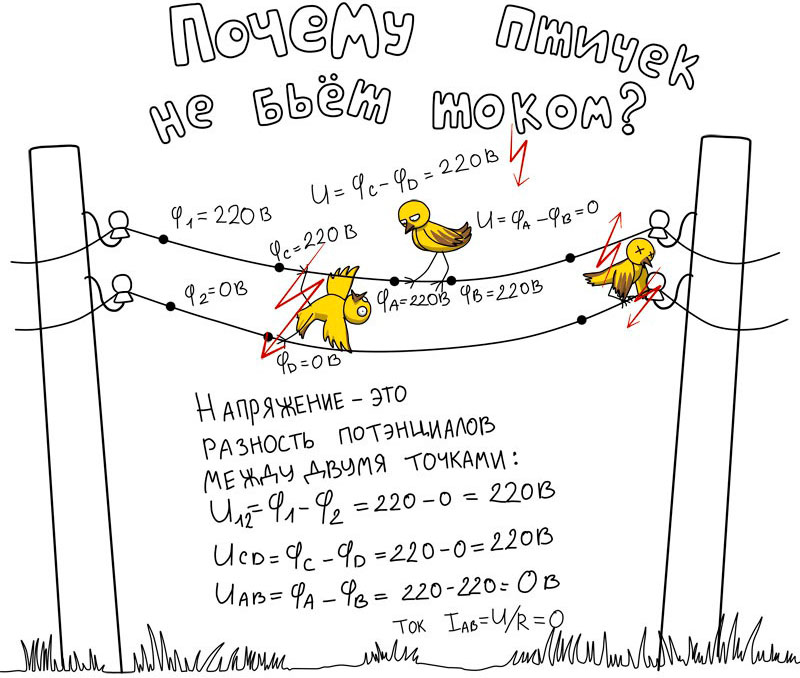 Почему птичек
не бьёт током?
U = φC - φD = 220В
φ1 = 220В
U = φA - φB = 0
φC = 220В
φ2 = 0В
φA = 220В φB = 220В
φD = 0В
НАПРЯЖЕНИЕ - ЭТО
РАЗНОСТЬ ПОТЭНЦИАЛОВ
МЕЖДУ ДВУМЯ ТОЧКАМИ:
U12 = φ1 - φ2 = 220 - 0 = 220В
UCD = φC - φD = 220 - 0 = 220В
UAB = φA - φB = 220 - 220 = 0В
ТОК IAB = U/R = 0